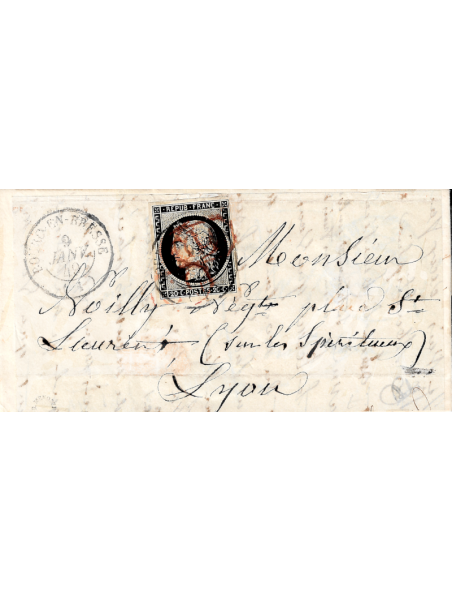 REPUB. FRANC.
20 C POSTES 20 C
BOURG-EN-BRESSE
9
JANV.
Monsieur
Noilly Négt. place St.
Laurent (sur les Spiritueux)
Lyon